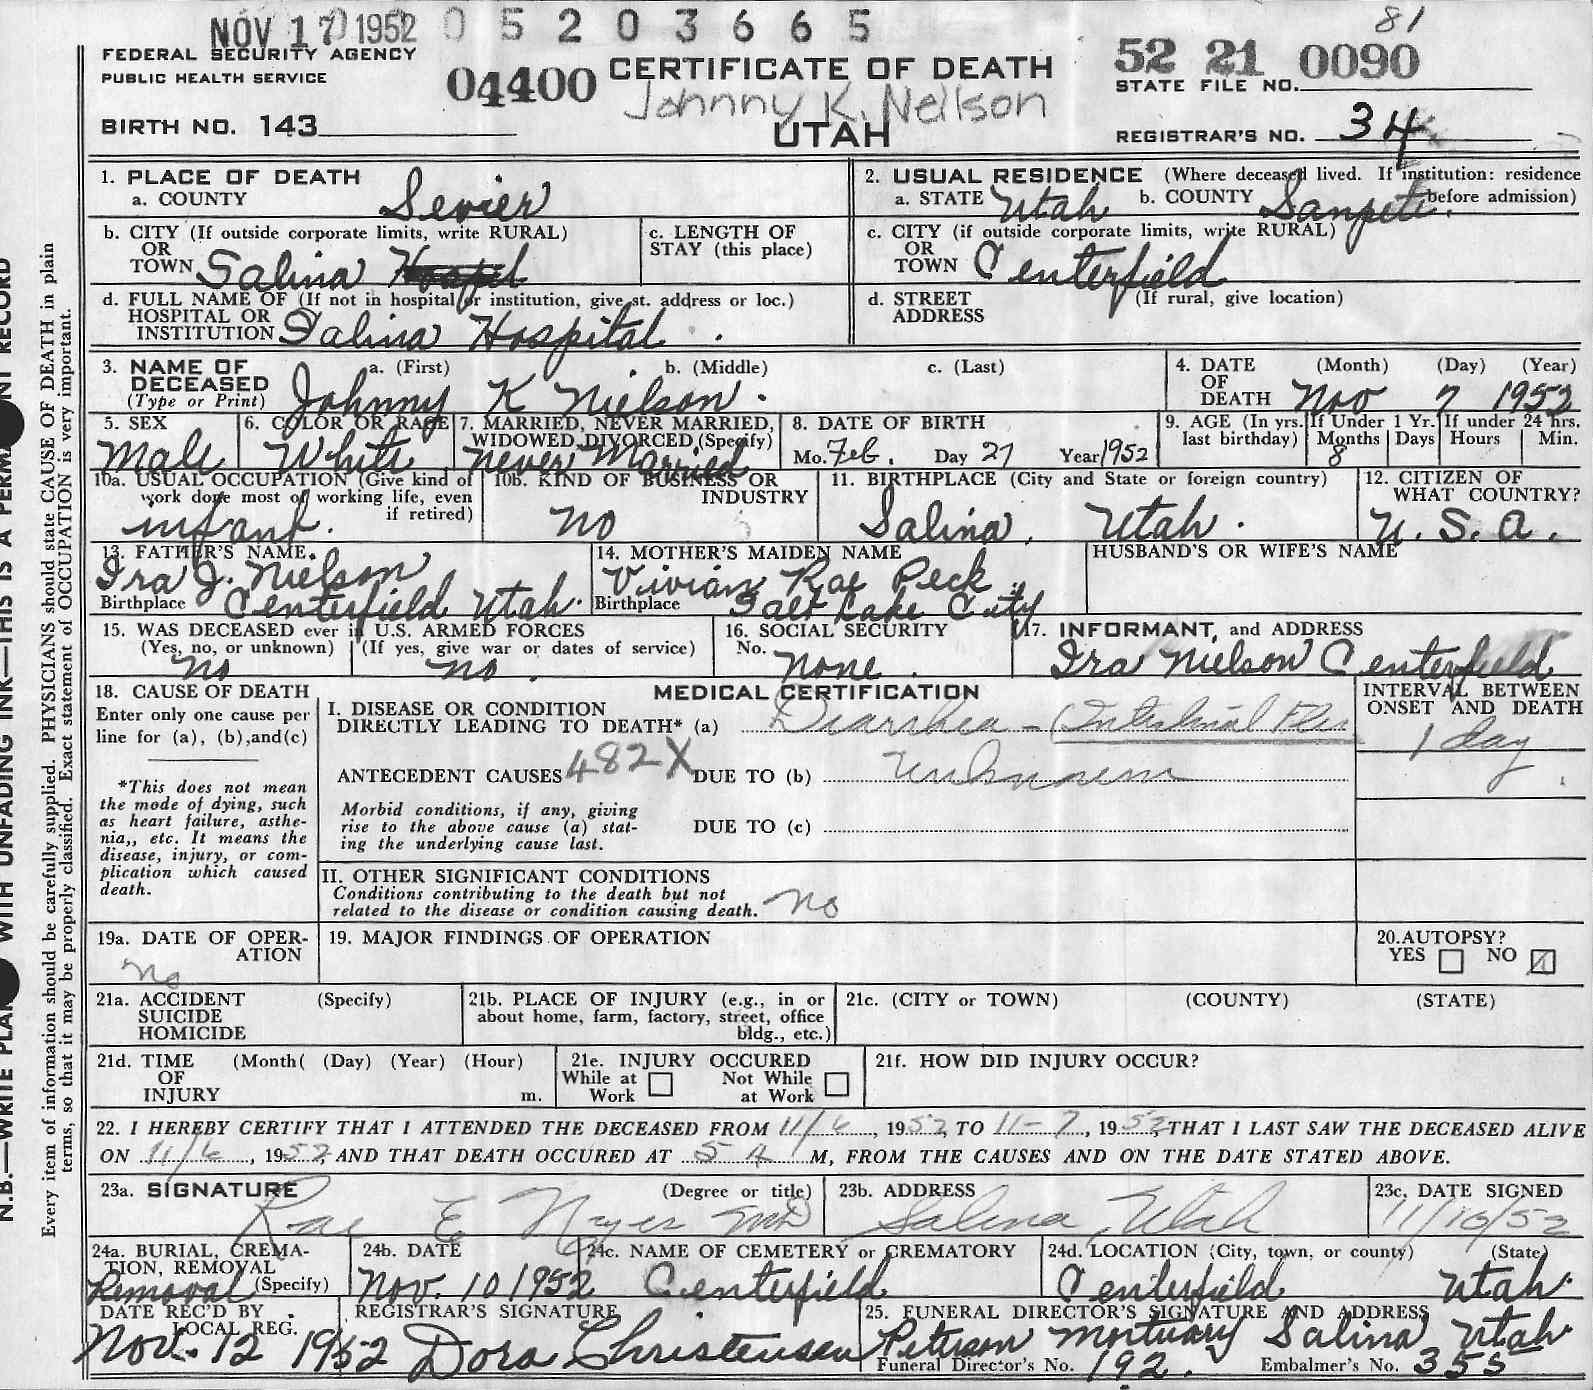 NOV 17 1952 0 5 2 0 3 6 6 5 81
FEDERAL SECURITY AGENCY
PUBLIC HEALTH SERVICE
04400 CERTIFICATE OF DEATH
52 21 0090
STATE FILE NO.
Johnny K. Neilson
BIRTH NO. 143
UTAH
REGISTRAR'S NO. 34
1. PLACE OF DEATH
a. COUNTY Sevier
2. USUAL RESIDENCE (Where deceased lived. If institution: residence
a. STATE Utah b. COUNTY Sanpete. before admission)
b. CITY (If outside corporate limits, write RURAL)
OR
TOWN Salina
c. LENGTH OF
STAY (this place)
c. CITY (if outside corporate limits, write RURAL)
OR
TOWN Centerfield
d. FULL NAME OF (If not in hospital or institution, give st. address or loc.)
HOSPITAL OR
INSTITUTION Salina Hospital.
d. STREET (If rural, give location)
ADDRESS
3. NAME OF a. (First) b. (Middle) c. (Last)
DECEASED
(Type or Print) Johnny K Nielson.
4. DATE (Month) (Day) (Year)
OF
DEATH Nov 7 1952
5. SEX
Male
6. COLOR OR RACE
White
7. MARRIED, NEVER MARRIED,
WIDOWED, DIVORCED, (Specify)
never Married
8. DATE OF BIRTH
Mo. Feb. Day 27 Year 1952
9. AGE (In yrs. If Under 1 Yr. If under 24 hrs.
last birthday) Months Days Hours Min.
8
10a. USUAL OCCUPATION (Give kind of
work done most of working life, even
if retired)
infant.
10b. KIND OF BUSINESS OR
INDUSTRY
no
11. BIRTHPLACE (City and State or foreign country)
Salina, Utah.
12. CITIZEN OF
WHAT COUNTRY?
U. S. A.
13. FATHER'S NAME.
Ira J. Nielson
Birthplace Centerfield Utah.
14. MOTHER'S MAIDEN NAME
Vivian Rae Peck
Birthplace Salt Lake City
HUSBAND'S OR WIFE'S NAME
15. WAS DECEASED ever in U.S. ARMED FORCES
(Yes, no, or unknown) (If yes, give war or dates of service)
no no.
16. SOCIAL SECURITY
No. none.
17. INFORMANT, and ADDRESS
Ira Nielson Centerfield
18. CAUSE OF DEATH
Enter only one cause per
line for (a), (b), and (c)
*This does not mean
the mode of dying, such
as heart failure, asthe-
nia,, etc. It means the
disease, injury, or com-
plication which caused
death.
MEDICAL CERTIFICATION
I. DISEASE OR CONDITION
DIRECTLY LEADING TO DEATH* (a) Diarrhea - (Intestinal Flu
ANTECEDENT CAUSES 482X DUE TO (b) Unknown
Morbid conditions, if any, giving
rise to the above cause (a) stat-
ing the underlying cause last.
DUE TO (c)
INTERVAL BETWEEN
ONSET AND DEATH
1 day
II. OTHER SIGNIFICANT CONDITIONS
Conditions contributing to the death but not
related to the disease or condition causing death. no
19a. DATE OF OPER-
ATION
no
19. MAJOR FINDINGS OF OPERATION
20. AUTOPSY?
YES NO
21a. ACCIDENT (Specify)
SUICIDE
HOMICIDE
21b. PLACE OF INJURY (e.g., in or
about home, farm, factory, street, office
bldg., etc.)
21c. (CITY or TOWN) (COUNTY) (STATE)
21d. TIME (Month( (Day) (Year) (Hour)
OF
INJURY m.
21e. INJURY OCCURED
While at Not While
Work at Work
21f. HOW DID INJURY OCCUR?
22. I HEREBY CERTIFY THAT I ATTENDED THE DECEASED FROM 11/6, 1952, TO 11-7, 1952, THAT I LAST SAW THE DECEASED ALIVE
ON 11/6, 1952, AND THAT DEATH OCCURED AT 5 A M, FROM THE CAUSES AND ON THE DATE STATED ABOVE.
23a. SIGNATURE (Degree or title)
Rae E Noyes MD
23b. ADDRESS
Salina, Utah
23c. DATE SIGNED
11/10/52
24a. BURIAL, CREMA-
TION, REMOVAL
Removal (Specify)
24b. DATE
Nov. 10 1952
24c. NAME OF CEMETERY or CREMATORY
Centerfield
24d. LOCATION (City, town, or county) (State)
Centerfield Utah.
DATE REC'D BY
LOCAL REG.
Nov. 12 1952
REGISTRAR'S SIGNATURE
Dora Christensen
25. FUNERAL DIRECTOR'S SIGNATURE AND ADDRESS
Peterson Mortuary Salina Utah.
Funeral Director's No. 192. Embalmer's No. 355
WITH UNFADING INK—THIS IS A
N.B.—WRITE
RECORD
Every item of information should be carefully supplied. PHYSICIANS should state CAUSE OF DEATH in plain
terms, so that it may be properly classified. Exact statement of OCCUPATION is very important.